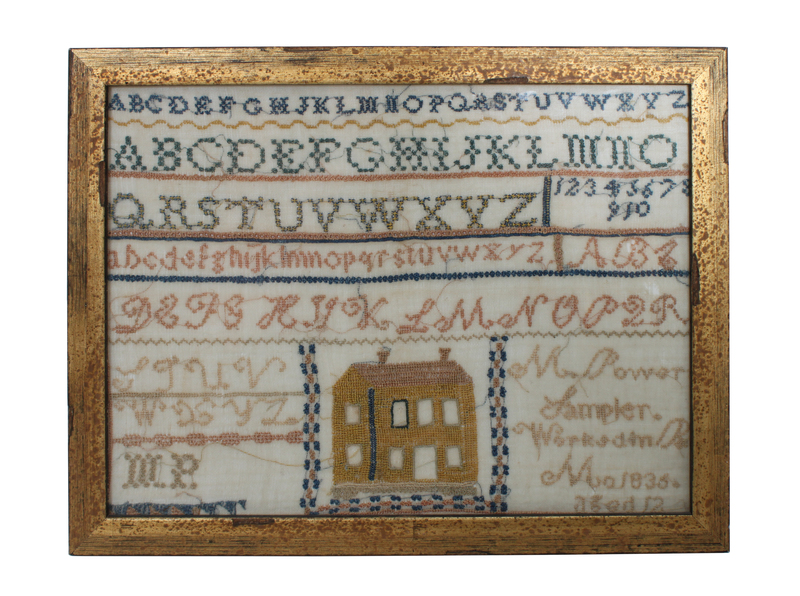 ABCDEFGHIJKLMNOPQRSTUVWXYZ
ABCDEFGHIJKLMNO
QRSTUVWXYZ 12345678
910
abcdefghijklmnopqrstuvwxyz ABC
DEFG HIJK LMNOPQR
STUV
WXYZ
M.P.
M Power
Sampler.
Worked in
Aged 12